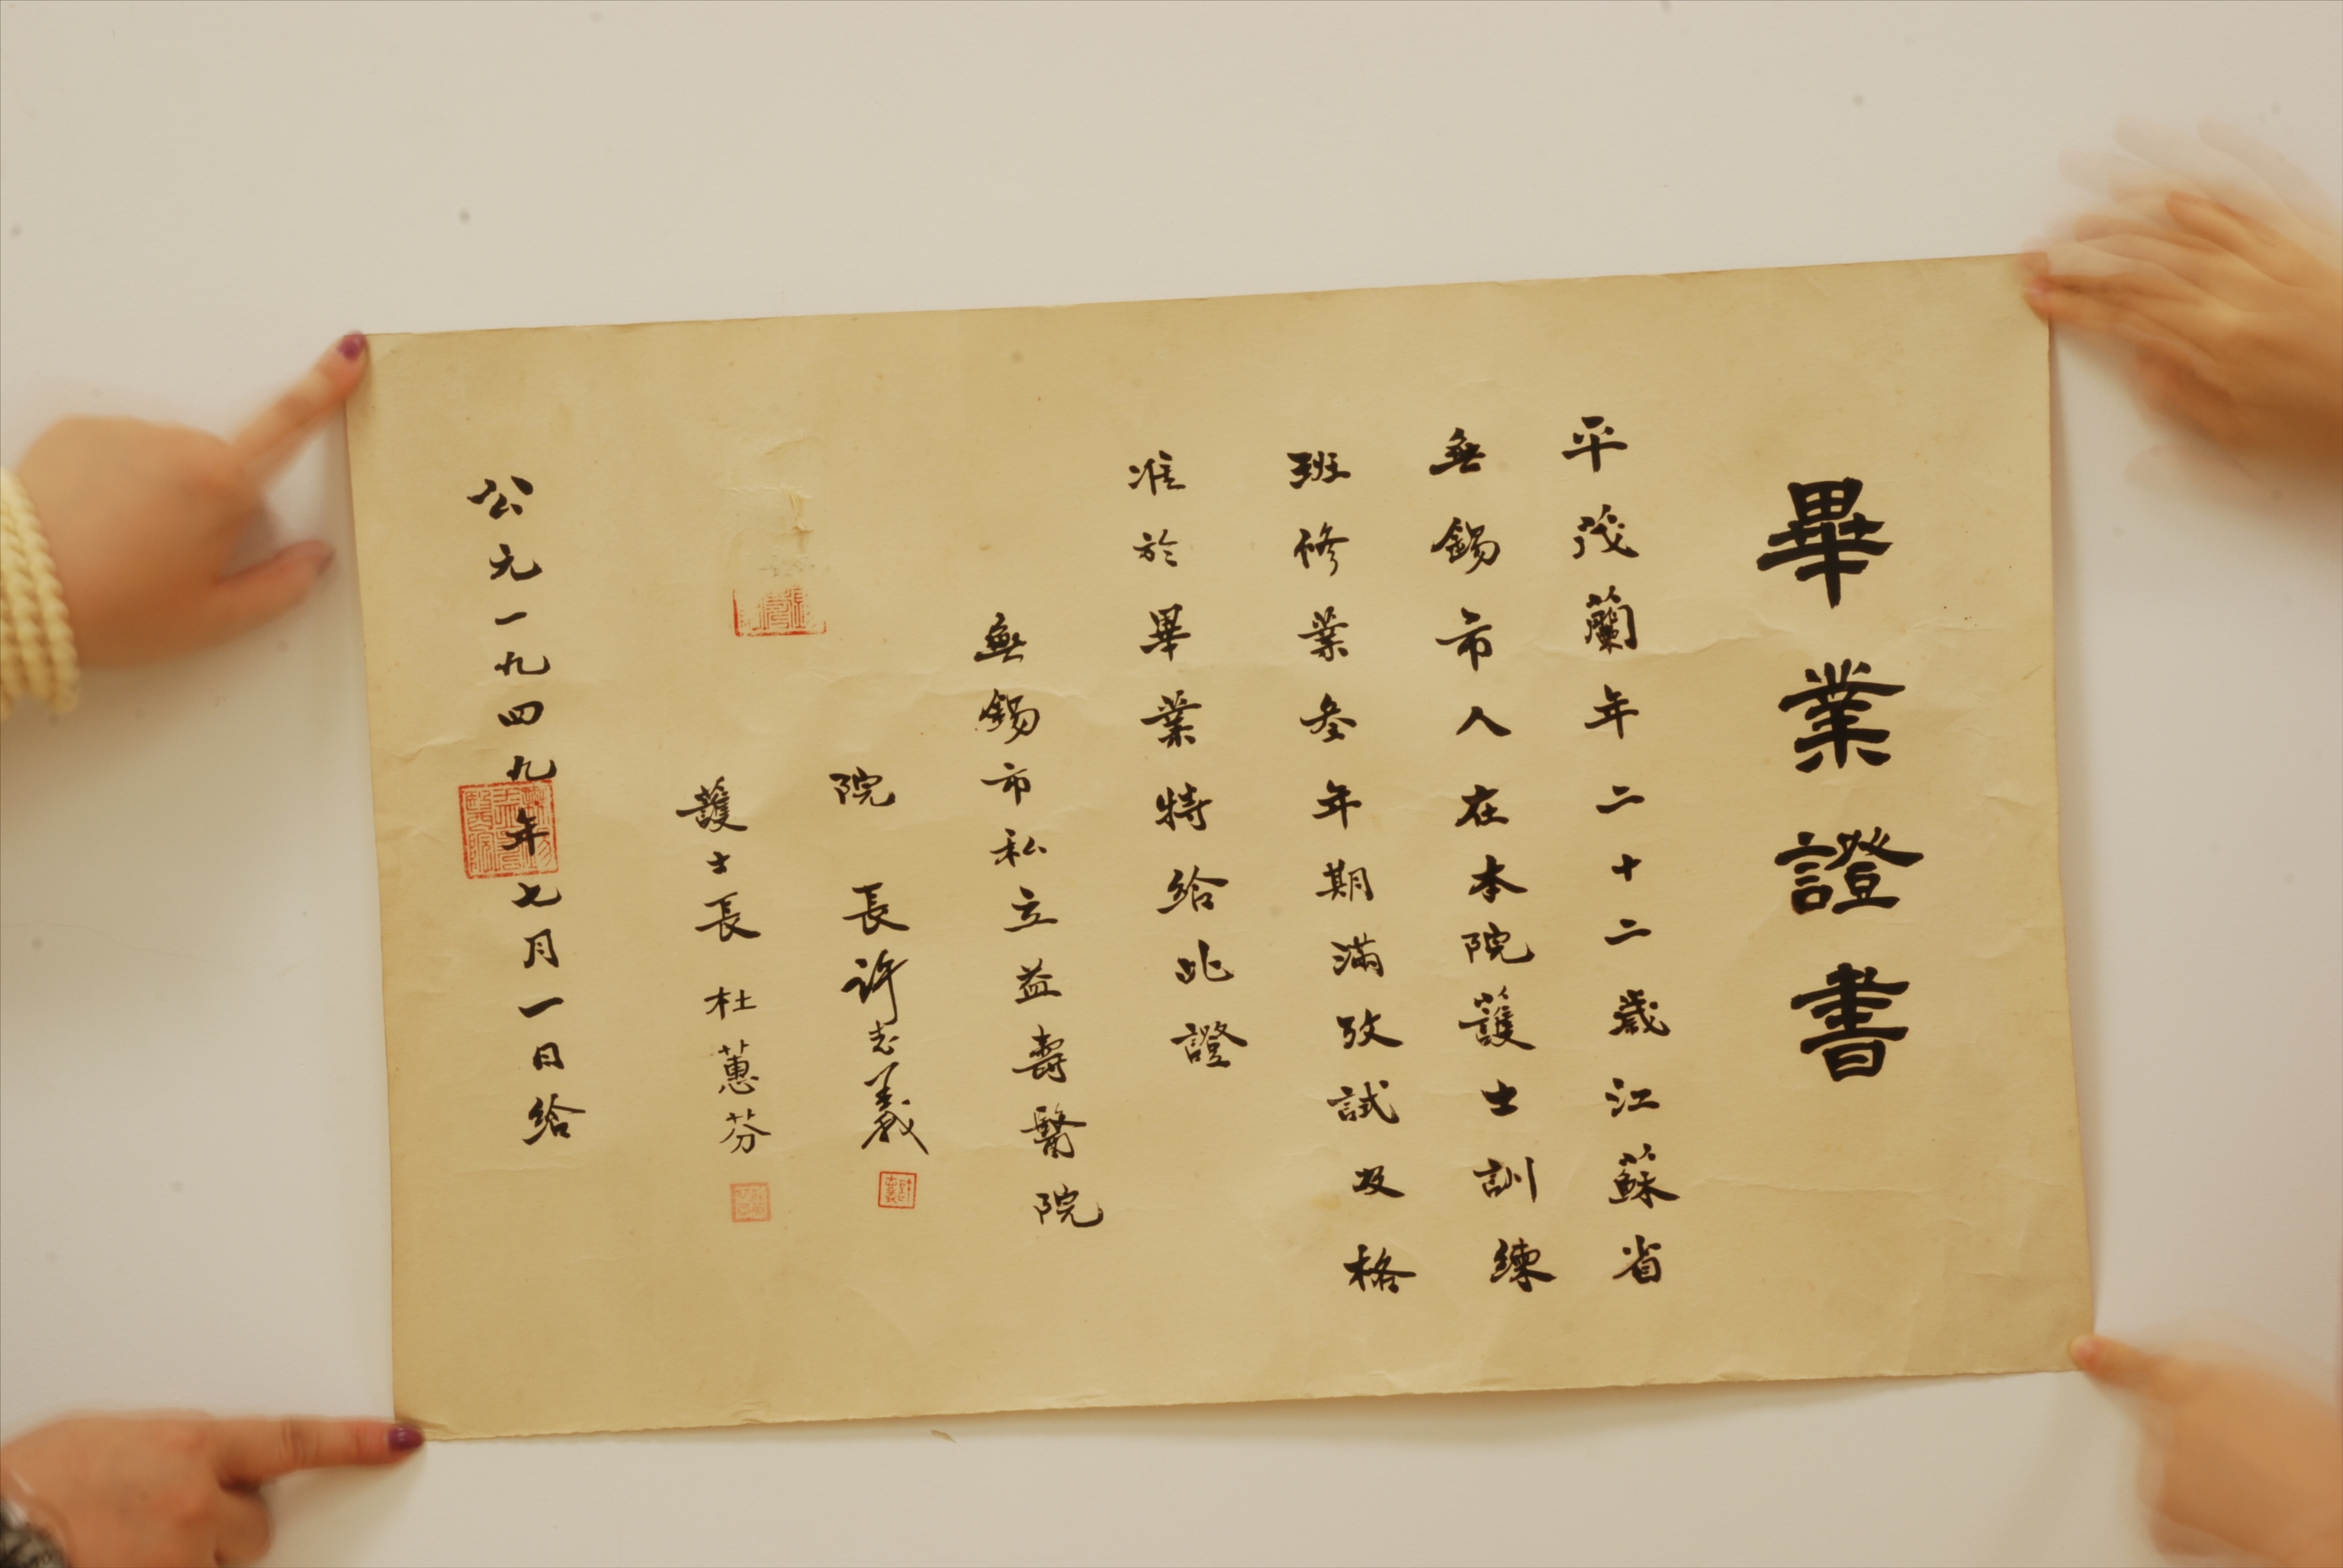 畢業證書
平茂蘭年二十二歲江蘇省
無錫市人在本院護士訓練
班修業叁年期滿攷試及格
准於畢業特給此證
無錫市私立益壽醫院
院長許志義
護士長杜蕙芬
公元一九四九年七月一日給